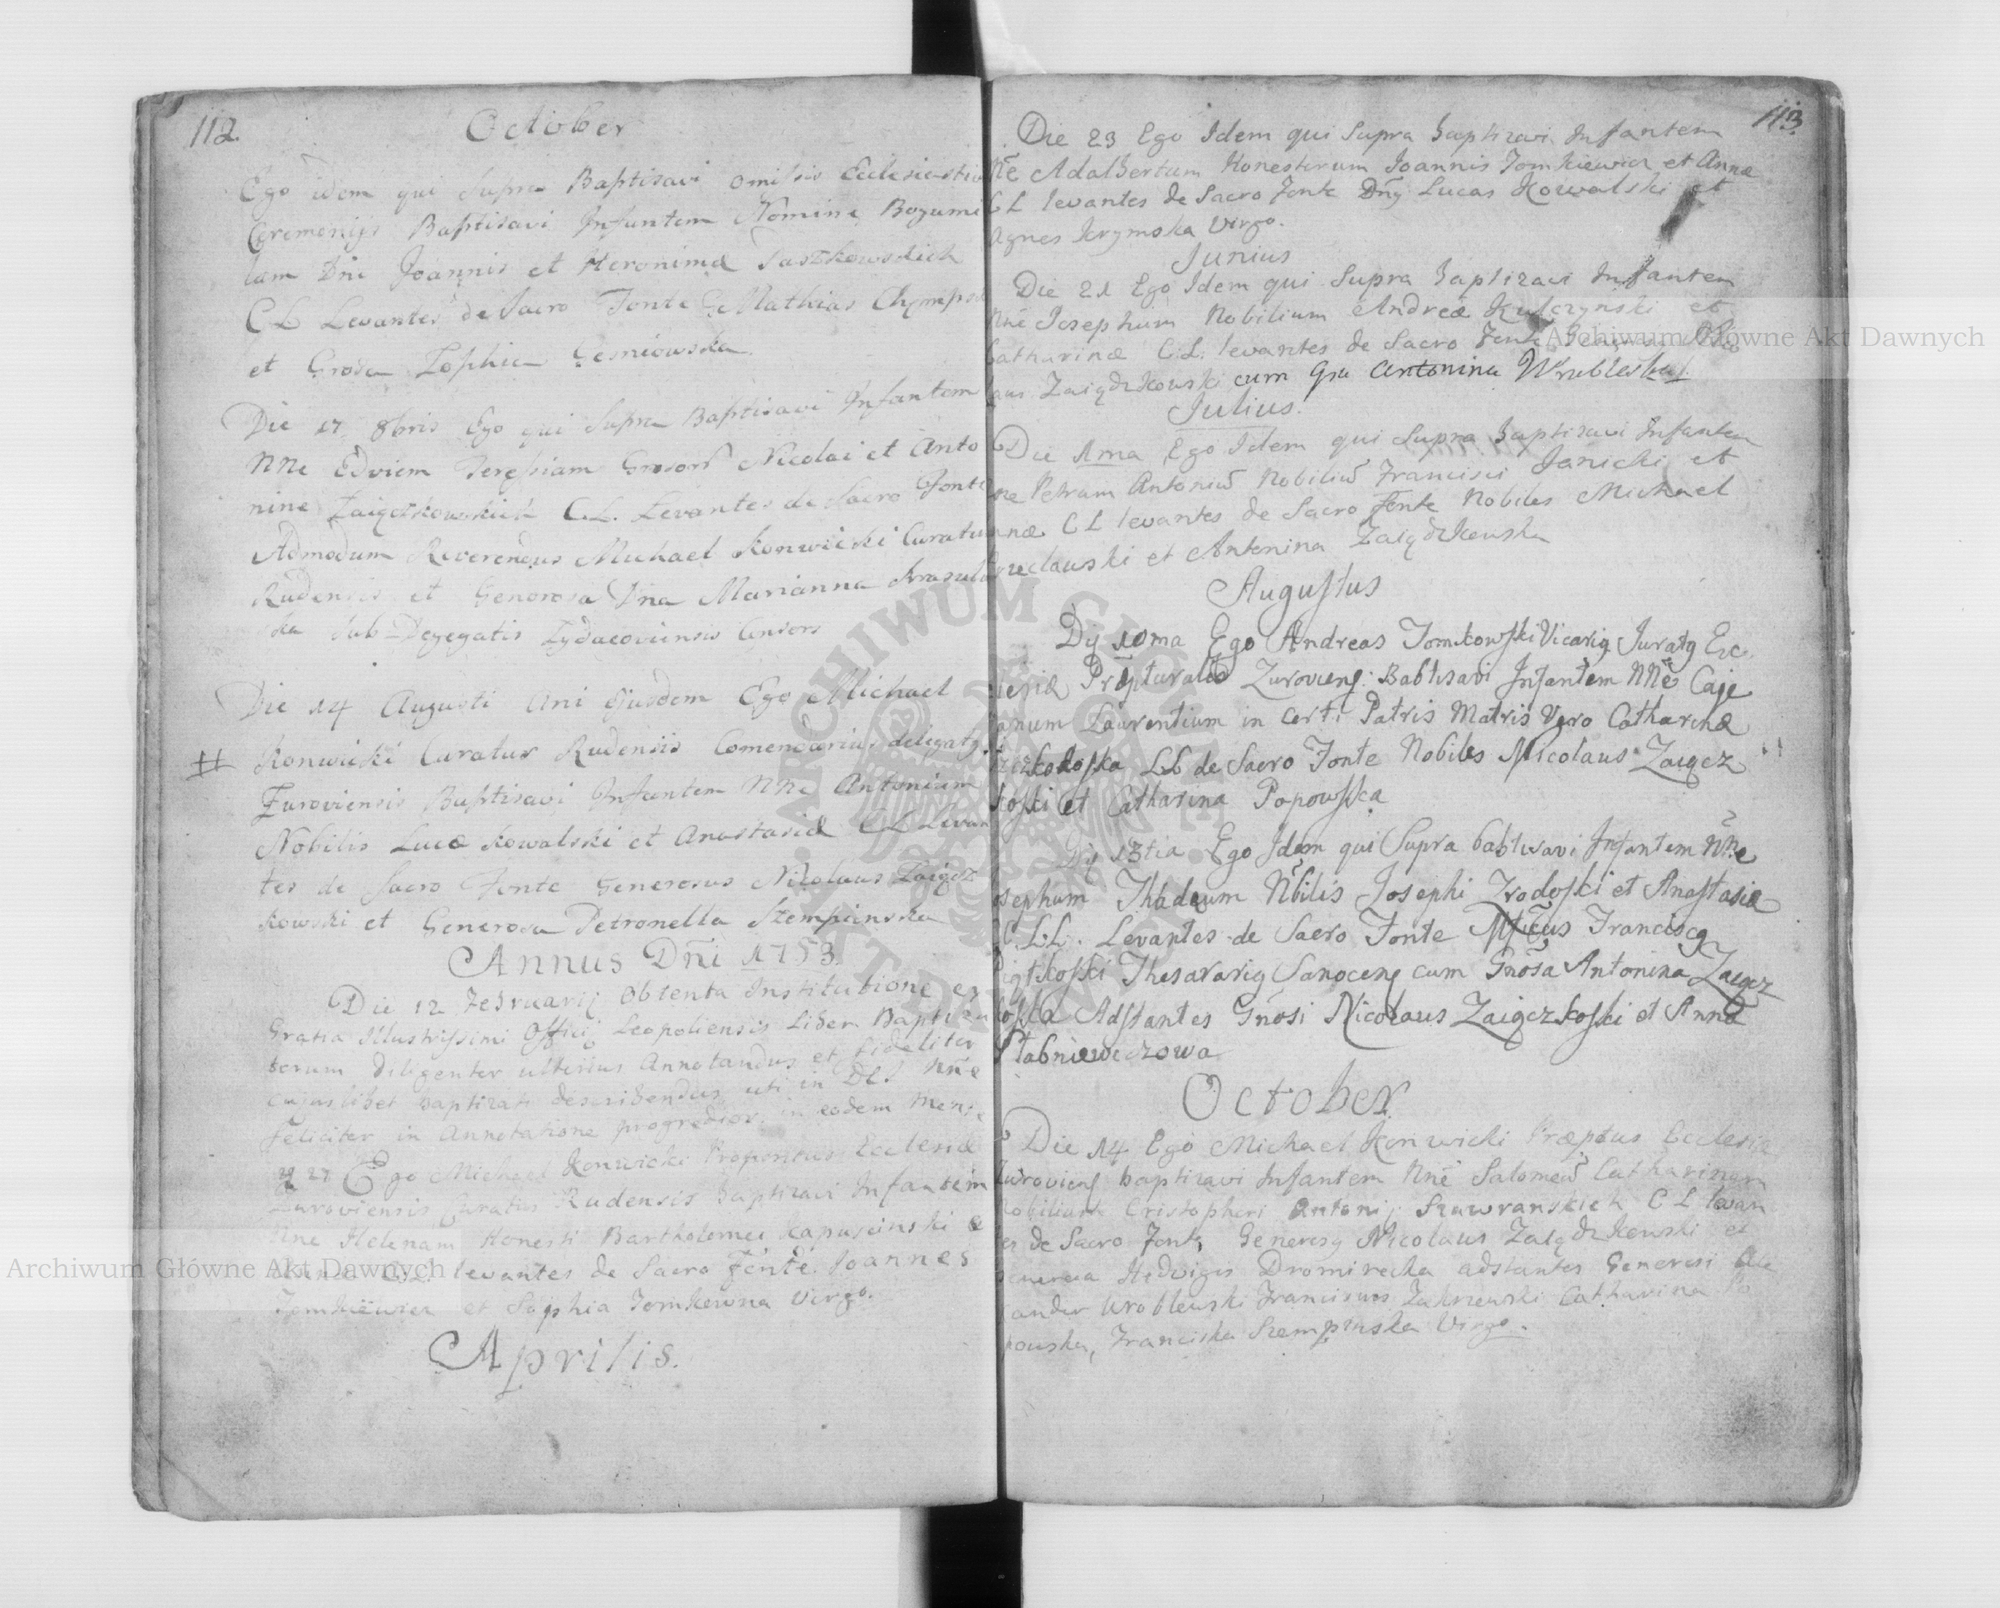 112.
October
Ego idem qui Supra Baptisavi omissis Ecclesiastic
Ceremonijs Baptisavi Infantem Nomine Bogumi
lam Dni Joannis et Heronima Taszkowskich
C L Levantes de Sacro Fonte G Mathias
et Grosa Zophia
Die 17 8bris Ego qui Supra Baptisavi Infantem
NNe Edviem Teressiam Grosorm Nicolai et Anto
nine Zaigczkowskich C.L. Levantes de Sacro Fonte
Admodum Reverendus Michael Konwicki Curatu
Rudensis et Generosa Dna Marianna
Sub-Degegatis Zydacoviensis Consors
Die 14 Augusti Ani Ejusdem Ego Michael
Konwicki Curatus Rudensis Comendarius delegatg
Zuroviensis Baptisavi Infantem NNe Antonium
Nobilis Luca Kowalski et Anastasia CL Levan
tes de Sacro Fonte Generosus Nicolaus Zaigcz
kowski et Generosa Petronella Stempinska
Annus Dni 1753.
Die 12 Februarij Obtenta Institutione ex
Gratia Illustrissimi Officij Leopoliensis Liber Baptiza
torum diligenter ulterius Annotandus et fideliter
cujuslibet baptizati describendus uti in DEI Nne
feliciter in Annotatione progredior in eodem Mense
27 Ego Michael Konwicki Praepositus Ecclesiæ
Zuroviensis Curatus Rudensis baptizavi Infantem
Nne Helenam Honesti Bartholomei Kapuscinski e
C.L. levantes de Sacro Fonte Joannes
Tomkiewicz et Sophia Tomkewna Virgo.
Aprilis.
113
Die 23 Ego Idem qui Supra baptizavi Infantem
Nne Adalbertum Honestorum Joannis Tomkiewicz et Annæ
C L levantes de Sacro Fonte Dny Lucas Kowalski et
Agnes Krymska Virgo.
Junius
Die 21 Ego Idem qui Supra baptizavi Infantem
Nne Josephum Nobilium Andreæ Kulczynski et
Catharinæ C.L. levantes de Sacro Fonte
aus Zaiqdzkowski cum Gsa Antonina Wrublewska
Julius.
Die 1ma Ego Idem qui Supra baptizavi Infantem
ne Petrum Antoniu Nobiliu Francisci Janicki et
nnæ C L levantes de Sacro Fonte Nobiles Michael
reclawski et Antonina Zaiqdzkowska
Augustus
Dij 10ma Ego Andreas Tomkowski Vicarig Juratg Ecc
lesiæ Præpturalis Zurovieng: Babtisavi Infantem NNe Caje
tanum Laurentium in certi Patris Matris Vero Catharinæ
LL de Sacro Fonte Nobiles Nicolaus Zaigcz
koski et Catharina Popowska
Dij 13tia Ego Idem qui Supra babtisavi Infantem NNe
osephum Thadeum Nbilis Josephi Zrodoski et Anastasiæ
C L.L. Levantes de Sacro Fonte Mficus Franciscg
Pigtkoski Thesararig Sanoceng cum Gnosa Antonina Zaigcz
koska Adstantes Gnosi Nicolaus Zaigczkoski et Anna
Stabniewiczowa
October
Die 14 Ego Michael Konwicki Præptus Ecclesiæ
Zurovieng baptizavi Infantem Nne Salomeu Catharinam
Nobilium Cristophori Antonij Szawranskich C L levan
es de Sacro Fonte Generosg Nicolaus Zaiqdzkowski et
enerosa Hedvigis Dromirecka adstantes Generosi Ale
xander Wroblewski Franciscus Zakrzewski Catharina Po
powska, Franciska Szempinska Virgo.
Archiwum Główne Akt Dawnych
Archiwum Główne Akt Dawnych
ARCHIWUM GŁÓWNE AKT DAWNYCH